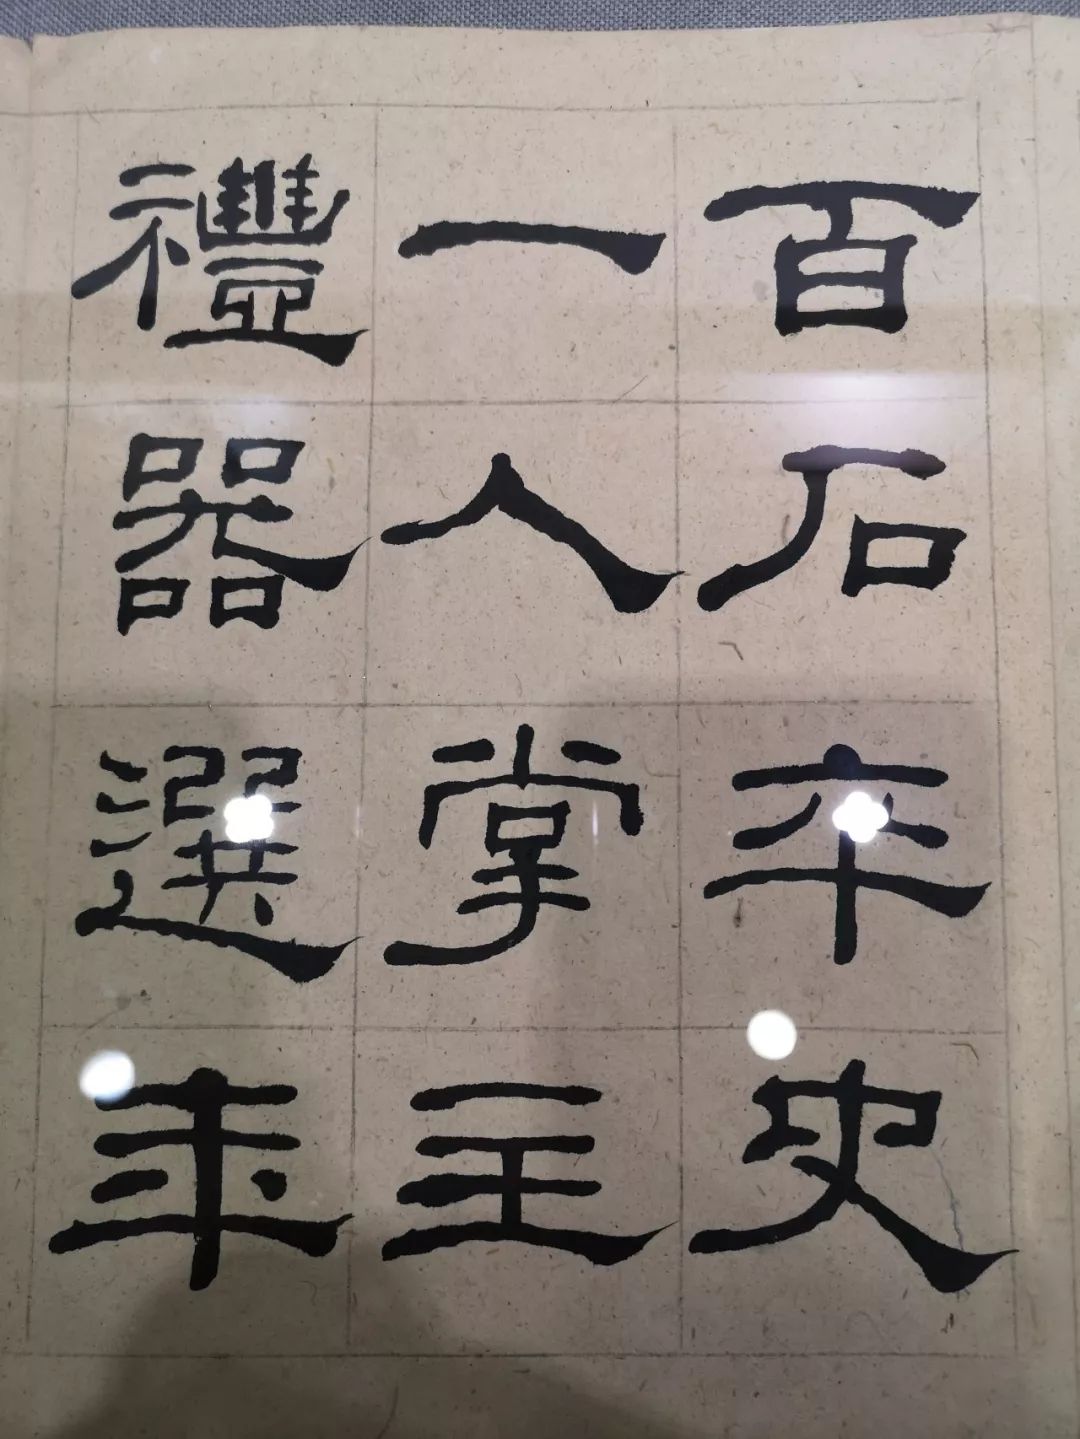 百石卒史
一人掌主
禮器選年